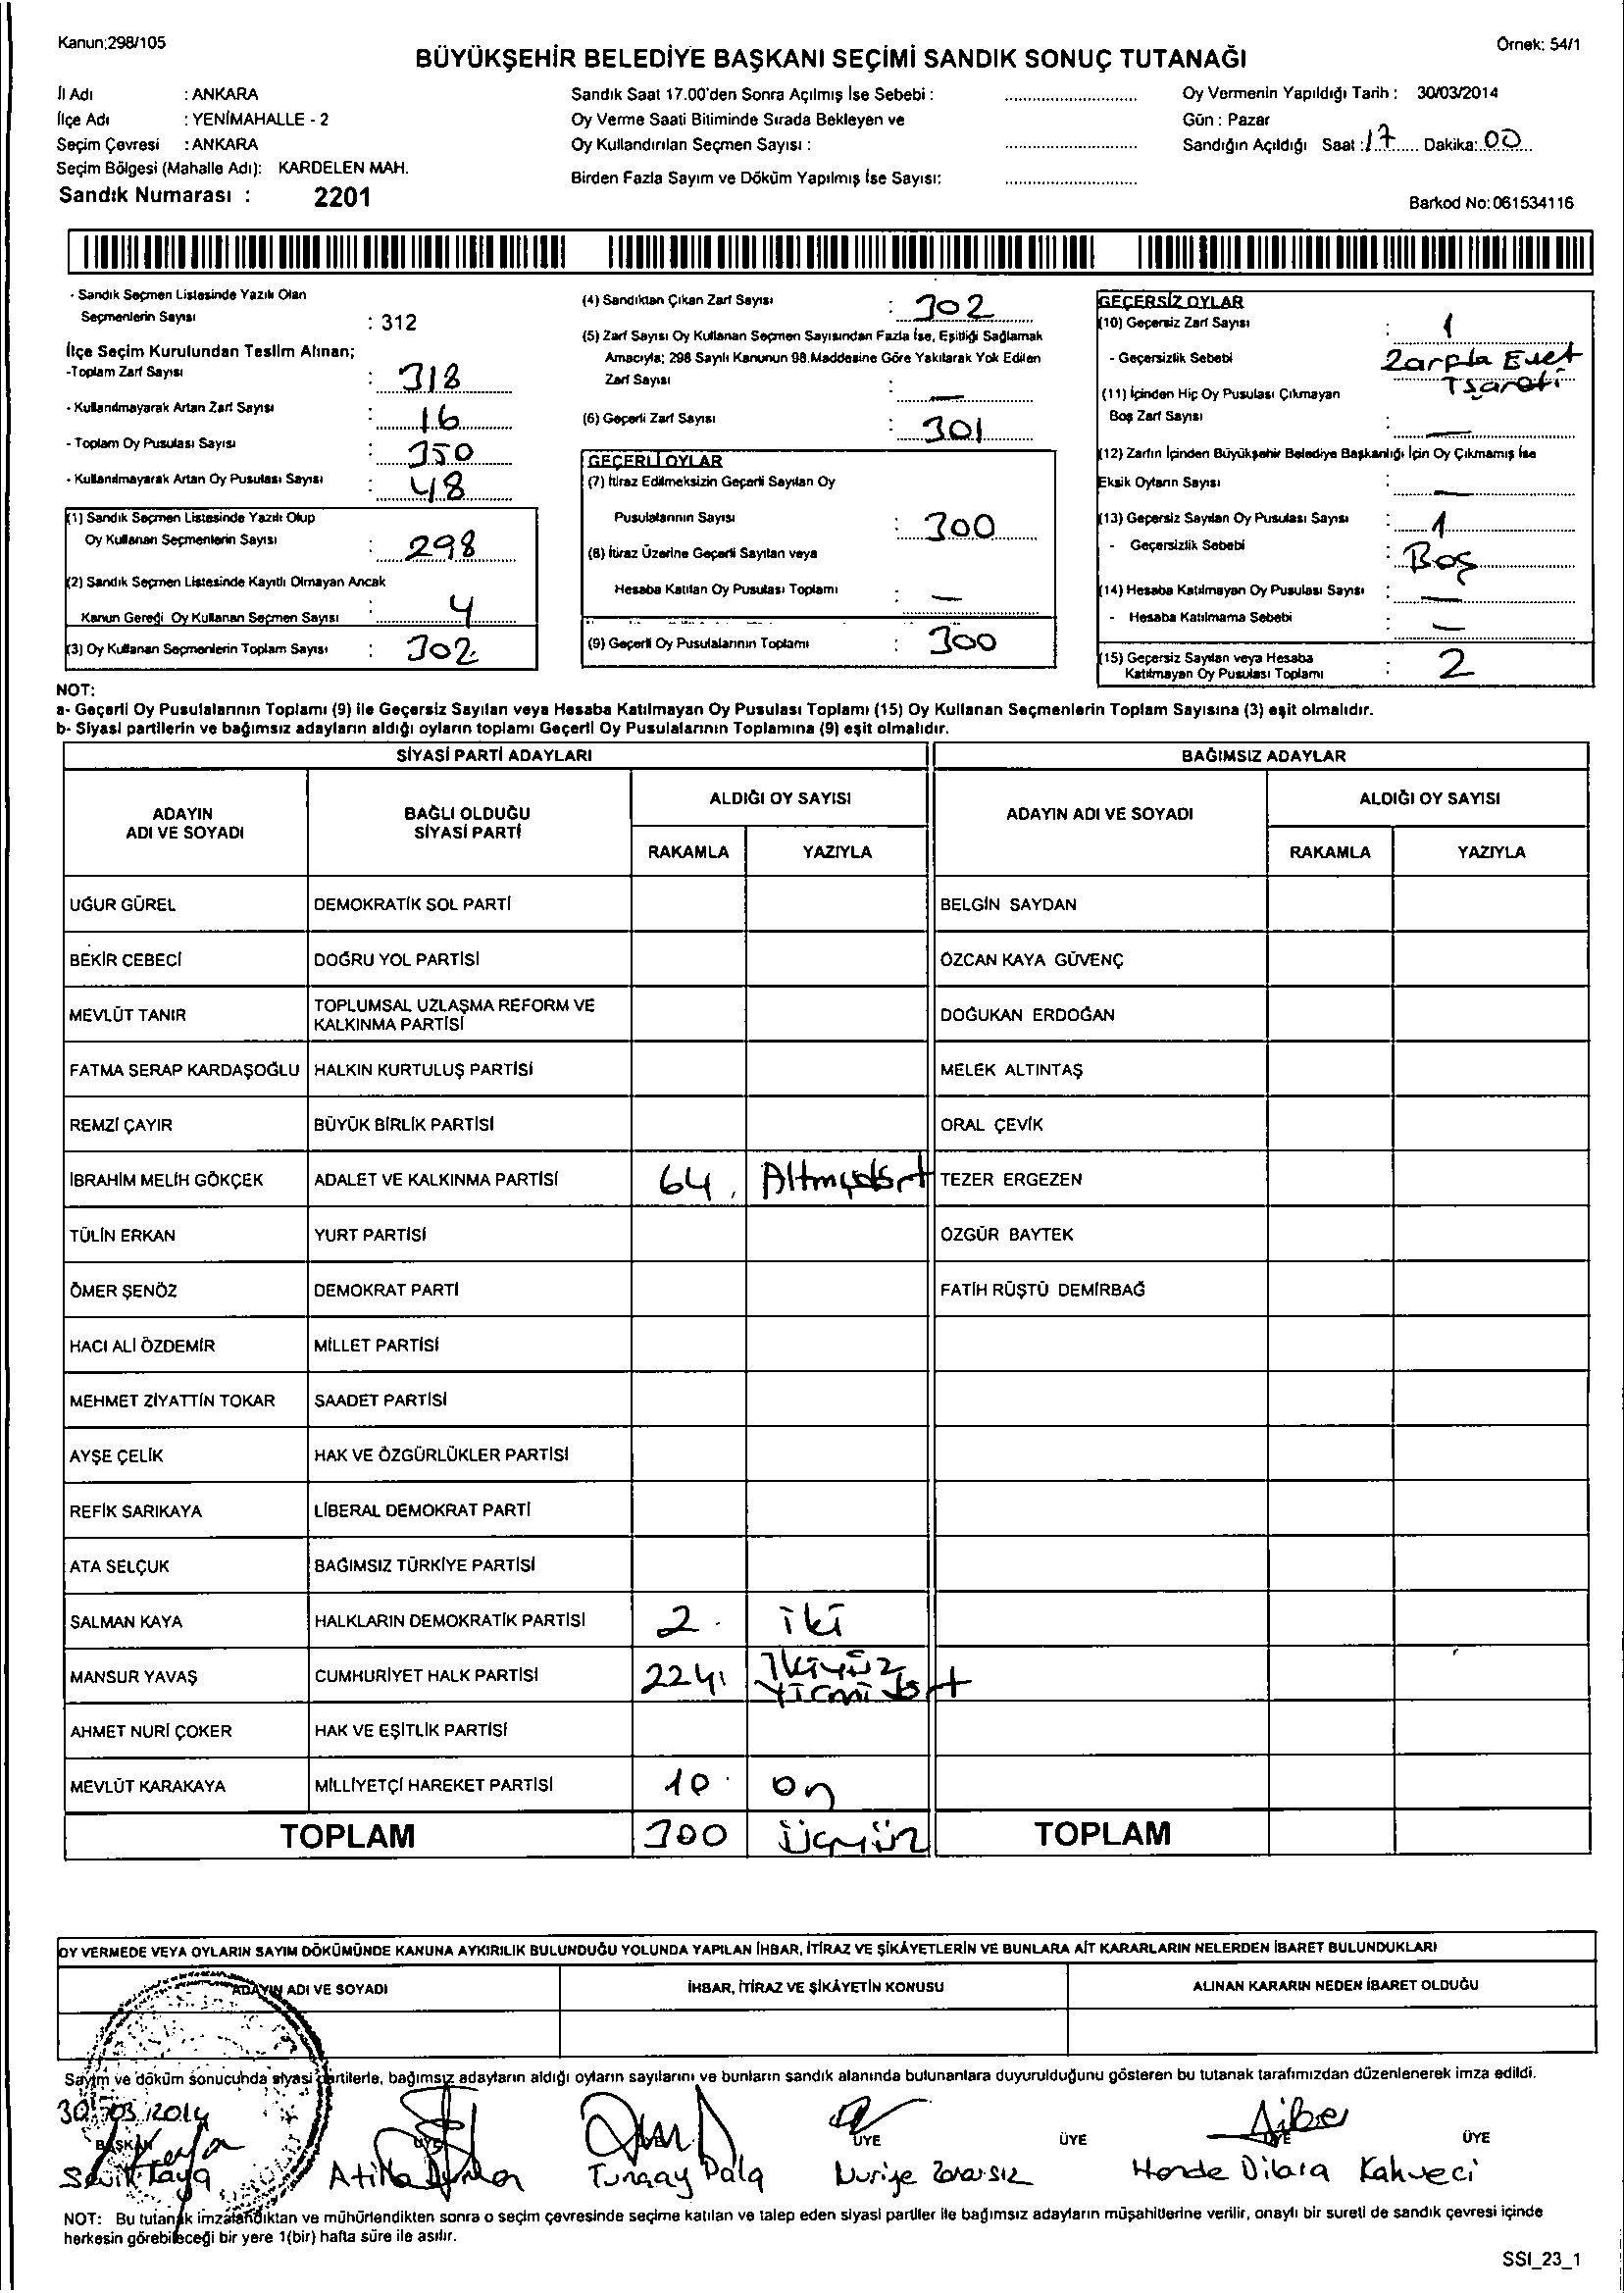 Kanun;298/105
Örnek: 54/1
BÜYÜKŞEHİR BELEDİYE BAŞKANI SEÇİMİ SANDIK SONUÇ TUTANAĞI
İl Adı : ANKARA
İlçe Adı : YENİMAHALLE - 2
Seçim Çevresi : ANKARA
Seçim Bölgesi (Mahalle Adı): KARDELEN MAH.
Sandık Numarası : 2201
Sandık Saat 17.00'den Sonra Açılmış İse Sebebi :
Oy Verme Saati Bitiminde Sırada Bekleyen ve
Oy Kullandırılan Seçmen Sayısı :
Birden Fazla Sayım ve Döküm Yapılmış İse Sayısı:
Oy Vermenin Yapıldığı Tarih : 30/03/2014
Gün : Pazar
Sandığın Açıldığı Saat : 17 Dakika: 00
Barkod No: 061534116
- Sandık Seçmen Listesinde Yazılı Olan
Seçmenlerin Sayısı : 312
İlçe Seçim Kurulundan Teslim Alınan;
-Toplam Zarf Sayısı : 318
- Kullanılmayarak Artan Zarf Sayısı : 16
- Toplam Oy Pusulası Sayısı : 350
- Kullanılmayarak Artan Oy Pusulası Sayısı : 48
(1) Sandık Seçmen Listesinde Yazılı Olup
Oy Kullanan Seçmenlerin Sayısı : 298
(2) Sandık Seçmen Listesinde Kayıtlı Olmayan Ancak
Kanun Gereği Oy Kullanan Seçmen Sayısı : 4
(3) Oy Kullanan Seçmenlerin Toplam Sayısı : 302
(4) Sandıktan Çıkan Zarf Sayısı : 302
(5) Zarf Sayısı Oy Kullanan Seçmen Sayısından Fazla İse, Eşitliği Sağlamak
Amacıyla; 298 Sayılı Kanunun 98.Maddesine Göre Yakılarak Yok Edilen
Zarf Sayısı : —
(6) Geçerli Zarf Sayısı : 301
GEÇERLİ OYLAR
(7) İtiraz Edilmeksizin Geçerli Sayılan Oy
Pusulalarının Sayısı : 300
(8) İtiraz Üzerine Geçerli Sayılan veya
Hesaba Katılan Oy Pusulası Toplamı : —
(9) Geçerli Oy Pusulalarının Toplamı : 300
GEÇERSİZ OYLAR
(10) Geçersiz Zarf Sayısı : 1
- Geçersizlik Sebebi : Zarfta Evet
İşareti
(11) İçinden Hiç Oy Pusulası Çıkmayan
Boş Zarf Sayısı : —
(12) Zarfın İçinden Büyükşehir Belediye Başkanlığı İçin Oy Çıkmamış İse
Eksik Oyların Sayısı : —
(13) Geçersiz Sayılan Oy Pusulası Sayısı : 1
- Geçersizlik Sebebi : Boş
(14) Hesaba Katılmayan Oy Pusulası Sayısı : —
- Hesaba Katılmama Sebebi : —
(15) Geçersiz Sayılan veya Hesaba
Katılmayan Oy Pusulası Toplamı : 2
NOT:
a- Geçerli Oy Pusulalarının Toplamı (9) ile Geçersiz Sayılan veya Hesaba Katılmayan Oy Pusulası Toplamı (15) Oy Kullanan Seçmenlerin Toplam Sayısına (3) eşit olmalıdır.
b- Siyasi partilerin ve bağımsız adayların aldığı oyların toplamı Geçerli Oy Pusulalarının Toplamına (9) eşit olmalıdır.
SİYASİ PARTİ ADAYLARI BAĞIMSIZ ADAYLAR
ADAYIN
ADI VE SOYADI
BAĞLI OLDUĞU
SİYASİ PARTİ
ALDIĞI OY SAYISI
RAKAMLA YAZIYLA
ADAYIN ADI VE SOYADI
ALDIĞI OY SAYISI
RAKAMLA YAZIYLA
UĞUR GÜREL DEMOKRATİK SOL PARTİ BELGİN SAYDAN
BEKİR CEBECİ DOĞRU YOL PARTİSİ ÖZCAN KAYA GÜVENÇ
MEVLÜT TANIR TOPLUMSAL UZLAŞMA REFORM VE
KALKINMA PARTİSİ DOĞUKAN ERDOĞAN
FATMA SERAP KARDAŞOĞLU HALKIN KURTULUŞ PARTİSİ MELEK ALTINTAŞ
REMZİ ÇAYIR BÜYÜK BİRLİK PARTİSİ ORAL ÇEVİK
İBRAHİM MELİH GÖKÇEK ADALET VE KALKINMA PARTİSİ 64 Altmışdört TEZER ERGEZEN
TÜLİN ERKAN YURT PARTİSİ ÖZGÜR BAYTEK
ÖMER ŞENÖZ DEMOKRAT PARTİ FATİH RÜŞTÜ DEMİRBAĞ
HACI ALİ ÖZDEMİR MİLLET PARTİSİ
MEHMET ZİYATTİN TOKAR SAADET PARTİSİ
AYŞE ÇELİK HAK VE ÖZGÜRLÜKLER PARTİSİ
REFİK SARIKAYA LİBERAL DEMOKRAT PARTİ
ATA SELÇUK BAĞIMSIZ TÜRKİYE PARTİSİ
SALMAN KAYA HALKLARIN DEMOKRATİK PARTİSİ 2 iki
MANSUR YAVAŞ CUMHURİYET HALK PARTİSİ 224 İkiyüz
yirmi dört
AHMET NURİ ÇOKER HAK VE EŞİTLİK PARTİSİ
MEVLÜT KARAKAYA MİLLİYETÇİ HAREKET PARTİSİ 10 on
TOPLAM 300 üçyüz TOPLAM
OY VERMEDE VEYA OYLARIN SAYIM DÖKÜMÜNDE KANUNA AYKIRILIK BULUNDUĞU YOLUNDA YAPILAN İHBAR, İTİRAZ VE ŞİKÂYETLERİN VE BUNLARA AİT KARARLARIN NELERDEN İBARET BULUNDUKLARI
ADAYIN ADI VE SOYADI İHBAR, İTİRAZ VE ŞİKÂYETİN KONUSU ALINAN KARARIN NEDEN İBARET OLDUĞU
Sayım ve döküm sonucunda siyasi partilerle, bağımsız adayların aldığı oyların sayılarını ve bunların sandık alanında bulunanlara duyurulduğunu gösteren bu tutanak tarafımızdan düzenlenerek imza edildi.
30/03/2014
BAŞKAN ÜYE ÜYE ÜYE ÜYE ÜYE
Atilla Tuncay Pala Nuriye Zararsız Hande Dilara Kahveci
NOT: Bu tutanak imzalandıktan ve mühürlendikten sonra o seçim çevresinde seçime katılan ve talep eden siyasi partiler ile bağımsız adayların müşahitlerine verilir, onaylı bir sureti de sandık çevresi içinde
herkesin görebileceği bir yere 1(bir) hafta süre ile asılır.
SSI_23_1